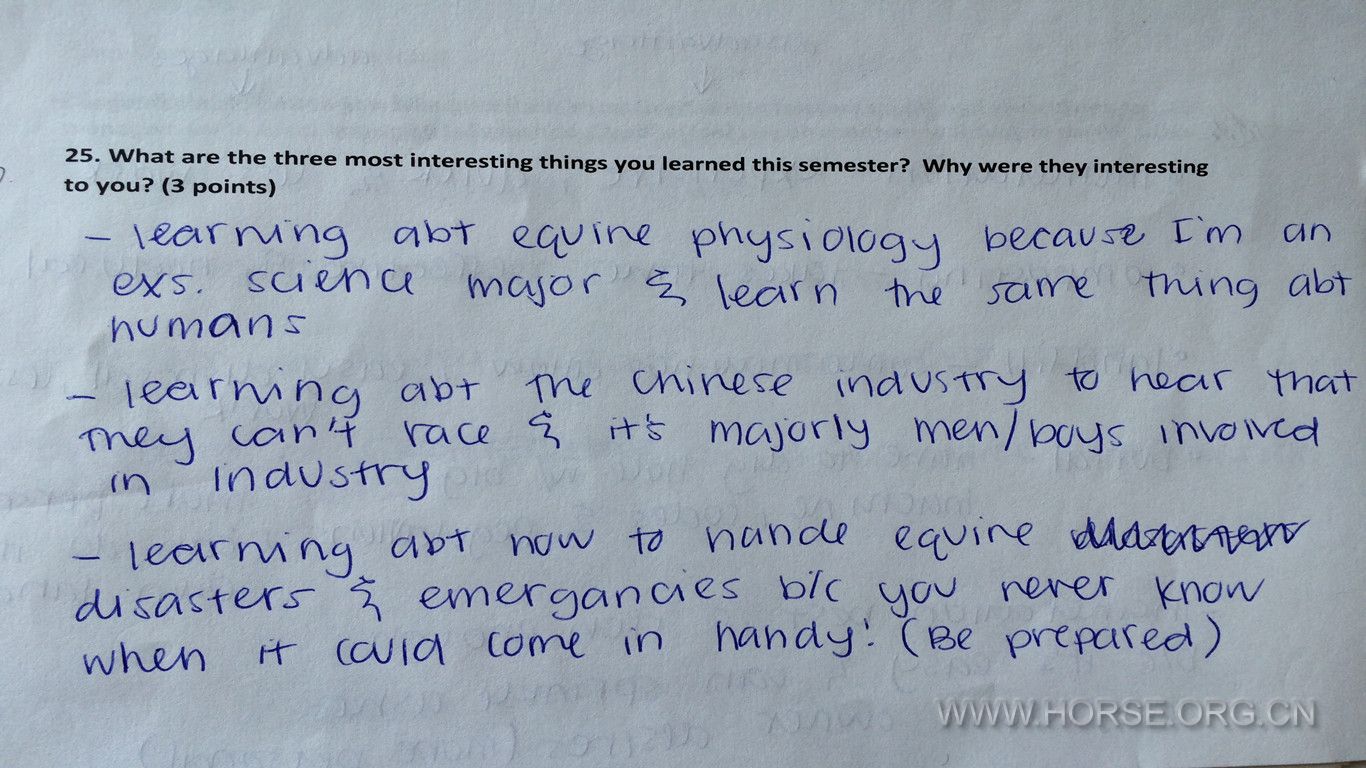 25. What are the three most interesting things you learned this semester? Why were they interesting
to you? (3 points)
- learning abt equine physiology because I'm an
exs. science major & learn the same thing abt
humans
- learning abt the Chinese industry to hear that
they can't race & it's majorly men/boys involved
in industry
- learning abt how to hande equine
disasters & emergancies b/c you never know
when it could come in handy! (Be prepared)
WWW.HORSE.ORG.CN